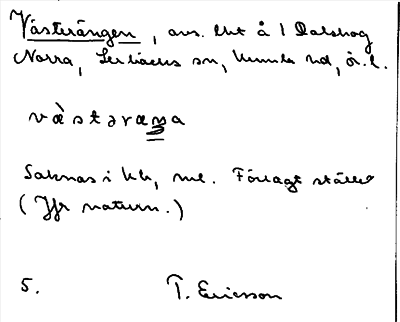 Västerängen, avs. lht å 1 Dalskog
Norra, Lerbäcks sn, Kumla hd, Ör. l.
vàstəraŋa
Saknas i kk, ml. Förlagt ställe
(Jfr naturn.)
5. T. Ericsson